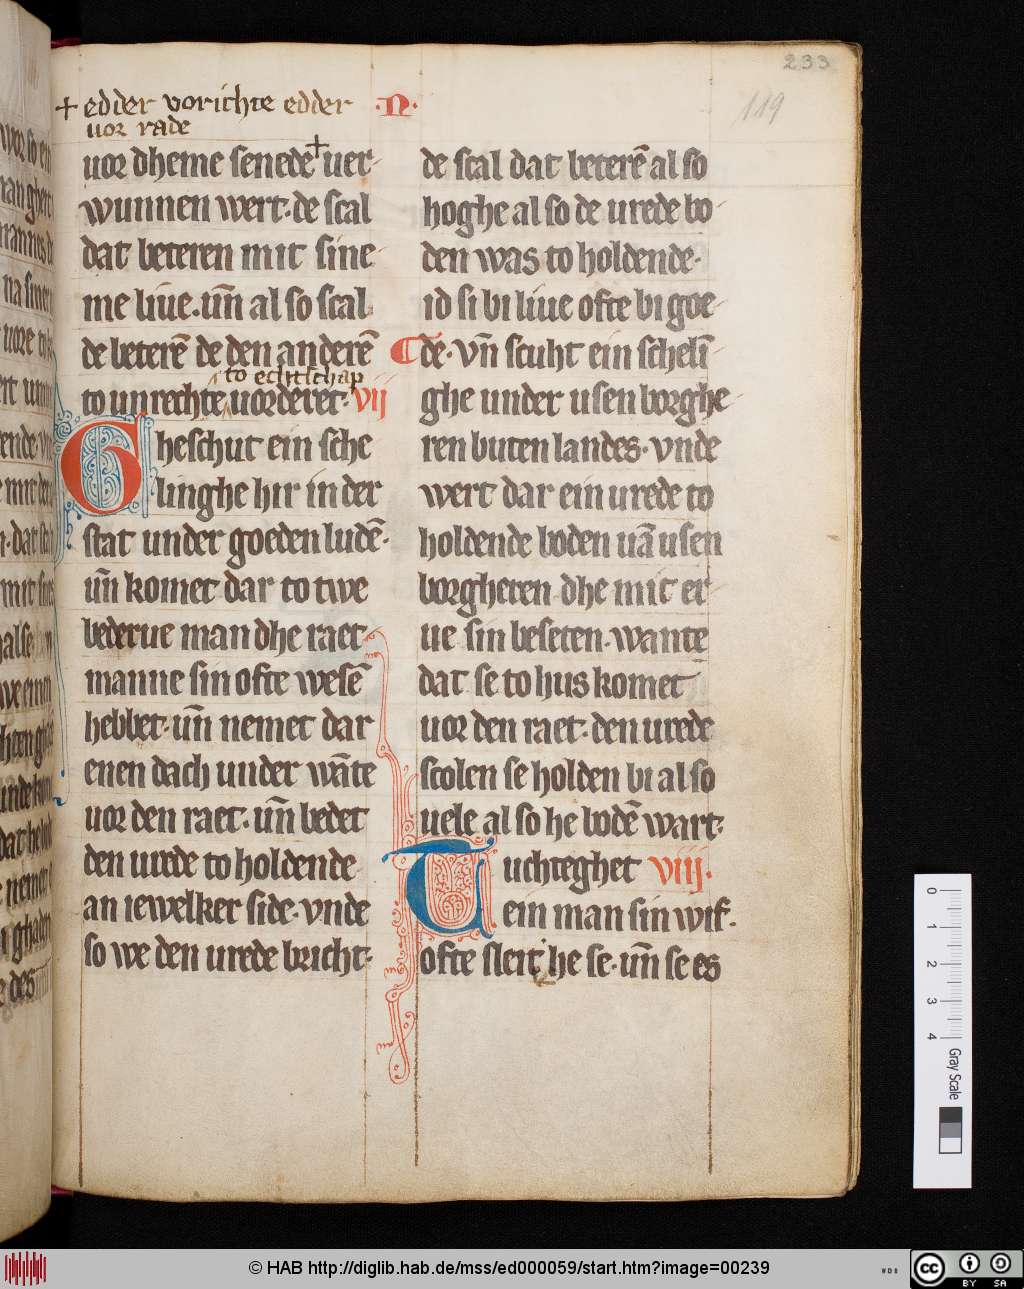 233
119
+ edder vorichte edder
vor rade
·N·
vor dheme senede + ver
wunnen wert· de scal
dat beteren mit sine
me liue· un̄ al so scal
de beterē de den anderē
to echtschap
to unrechte vorderet· vij
Gheschut ein sche
linghe hir in der
stat under goeden ludē·
un̄ komet dar to twe
dederue man dhe raet
manne sin ofte wesē
hebbet· un̄ nemet dar
enen dach under wāte
vor den raet· un̄ bedet
den urede to holdende
an iewelker side· vnde
so we den urede bricht·
de scal dat beterē al so
hoghe al so de urede bo
den was to holdende·
id si bi liue ofte bi goe
de· vn̄ scuht ein schelī
ghe under usen borghe
ren buten landes· vnde
wert dar ein urede to
holdende boden uā usen
borgheren dhe mit er
ue sin beseten· wante
dat se to hus komet
vor den raet· den urede
scolen se holden bi al so
uele al so he bodē wart·
Tuchteghet viij·
ein man sin wif·
ofte sleit he se· un̄ se es
0 1 2 3 4 Gray Scale
© HAB http://diglib.hab.de/mss/ed000059/start.htm?image=00239
WDB
cc BY SA